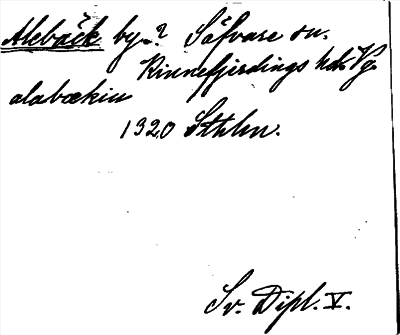 Alebäck by? Säfvare sn.
Kinnefjerdings hd. Vg.
alabækiu
1320 Sthlm.
Sv. Dipl. V.